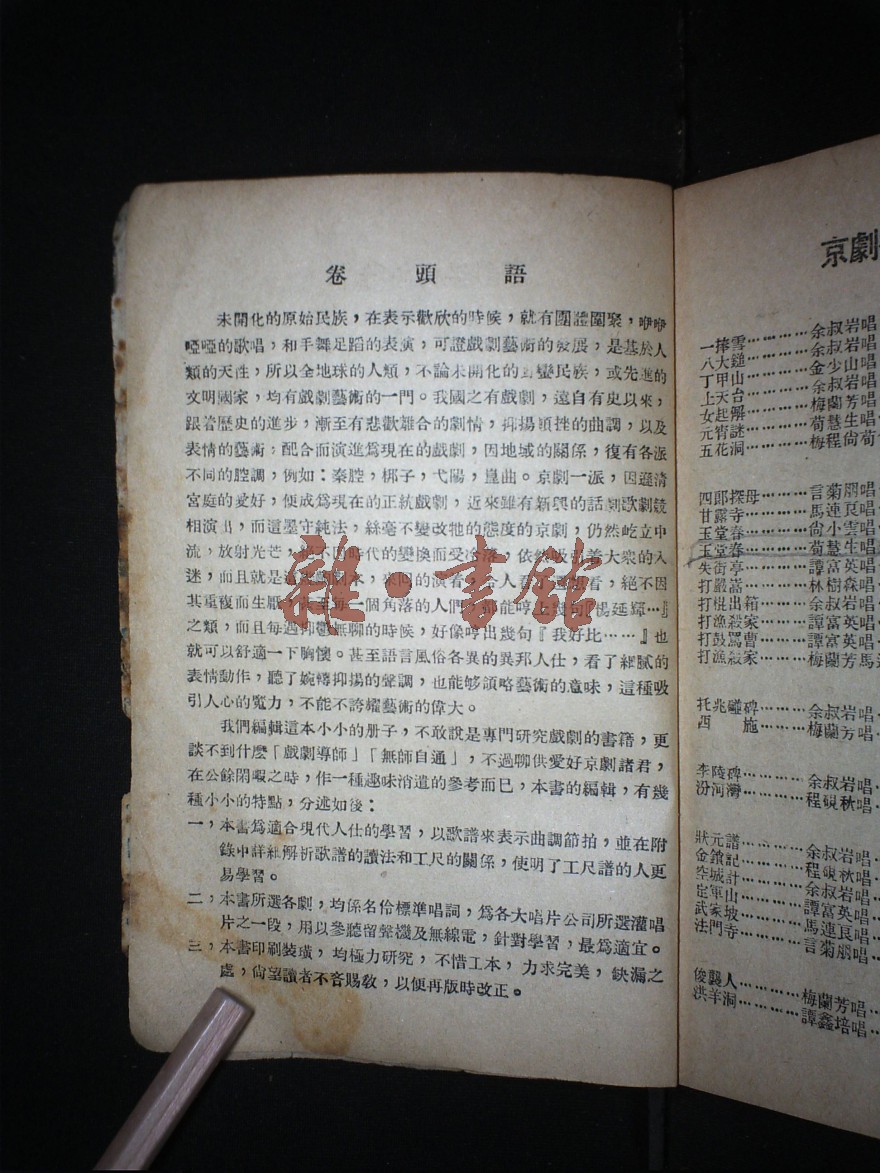 卷頭語
未開化的原始民族，在表示歡欣的時候，就有團體圍聚，咿咿
啞啞的歌唱，和手舞足蹈的表演，可證戲劇藝術的發展，是基於人
類的天性，所以全地球的人類，不論未開化的蠻民族，或先進的
文明國家，均有戲劇藝術的一門。我國之有戲劇，遠自有史以來，
跟着歷史的進步，漸至有悲歡離合的劇情，抑揚頓挫的曲調，以及
表情的藝術，配合而演進爲現在的戲劇，因地域的關係，復有各派
不同的腔調，例如：秦腔，梆子，弋陽，崑曲。京劇一派，因遜清
宮庭的愛好，便成爲現在的正統戲劇，近來雖有新興的話劇歌劇競
相演出，而這墨守純法，絲毫不變改牠的態度的京劇，仍然屹立中
流，放射光芒，絕不因時代的變換而受冷落，依然吸引着大衆的入
迷，而且就是這幾齣劇本，來回的演着，令人看了還想看，絕不因
其重複而生厭，甚至每一個角落的人們，都能哼上幾句『楊延輝…』
之類，而且每遇抑鬱無聊的時候，好像哼出幾句『我好比……』也
就可以舒適一下胸懷。甚至語言風俗各異的異邦人仕，看了細膩的
表情動作，聽了婉轉抑揚的聲調，也能够領略藝術的意味，這種吸
引人心的魔力，不能不誇耀藝術的偉大。
我們編輯這本小小的册子，不敢說是專門研究戲劇的書籍，更
談不到什麼「戲劇導師」「無師自通」，不過聊供愛好京劇諸君，
在公餘閑暇之時，作一種趣味消遣的參考而已，本書的編輯，有幾
種小小的特點，分述如後：
一，本書爲適合現代人仕的學習，以歌譜來表示曲調節拍，並在附
錄中詳細解析歌譜的讀法和工尺的關係，使明了工尺譜的人更
易學習。
二，本書所選各劇，均係名伶標準唱詞，爲各大唱片公司所選灌唱
片之一段，用以參聽留聲機及無線電，針對學習，最爲適宜。
三，本書印刷裝璜，均極力研究，不惜工本，力求完美，缺漏之
處，尙望讀者不吝賜敎，以便再版時改正。
雜·書館
京劇
一捧雪…………余叔岩唱
八大鎚…………余叔岩唱
丁甲山…………金少山唱
上天台…………余叔岩唱
女起解…………梅蘭芳唱
元宵謎…………荀慧生唱
五花洞…………梅程尙荀
四郎探母………言菊朋唱
甘露寺…………馬連良唱
玉堂春…………尙小雲唱
玉堂春…………荀慧生唱
失街亭…………譚富英唱
打嚴嵩…………林樹森唱
打棍出箱………余叔岩唱
打漁殺家………譚富英唱
打鼓罵曹………譚富英唱
打漁殺家………梅蘭芳馬連
托兆碰碑………余叔岩唱
西　施…………梅蘭芳唱
李陵碑…………余叔岩唱
汾河灣…………程硯秋唱
狀元譜…………余叔岩唱
金鎖記…………程硯秋唱
空城計…………余叔岩唱
定軍山…………譚富英唱
武家坡…………馬連良唱
法門寺…………言菊朋唱
俊襲人…………梅蘭芳唱
洪羊洞…………譚鑫培唱